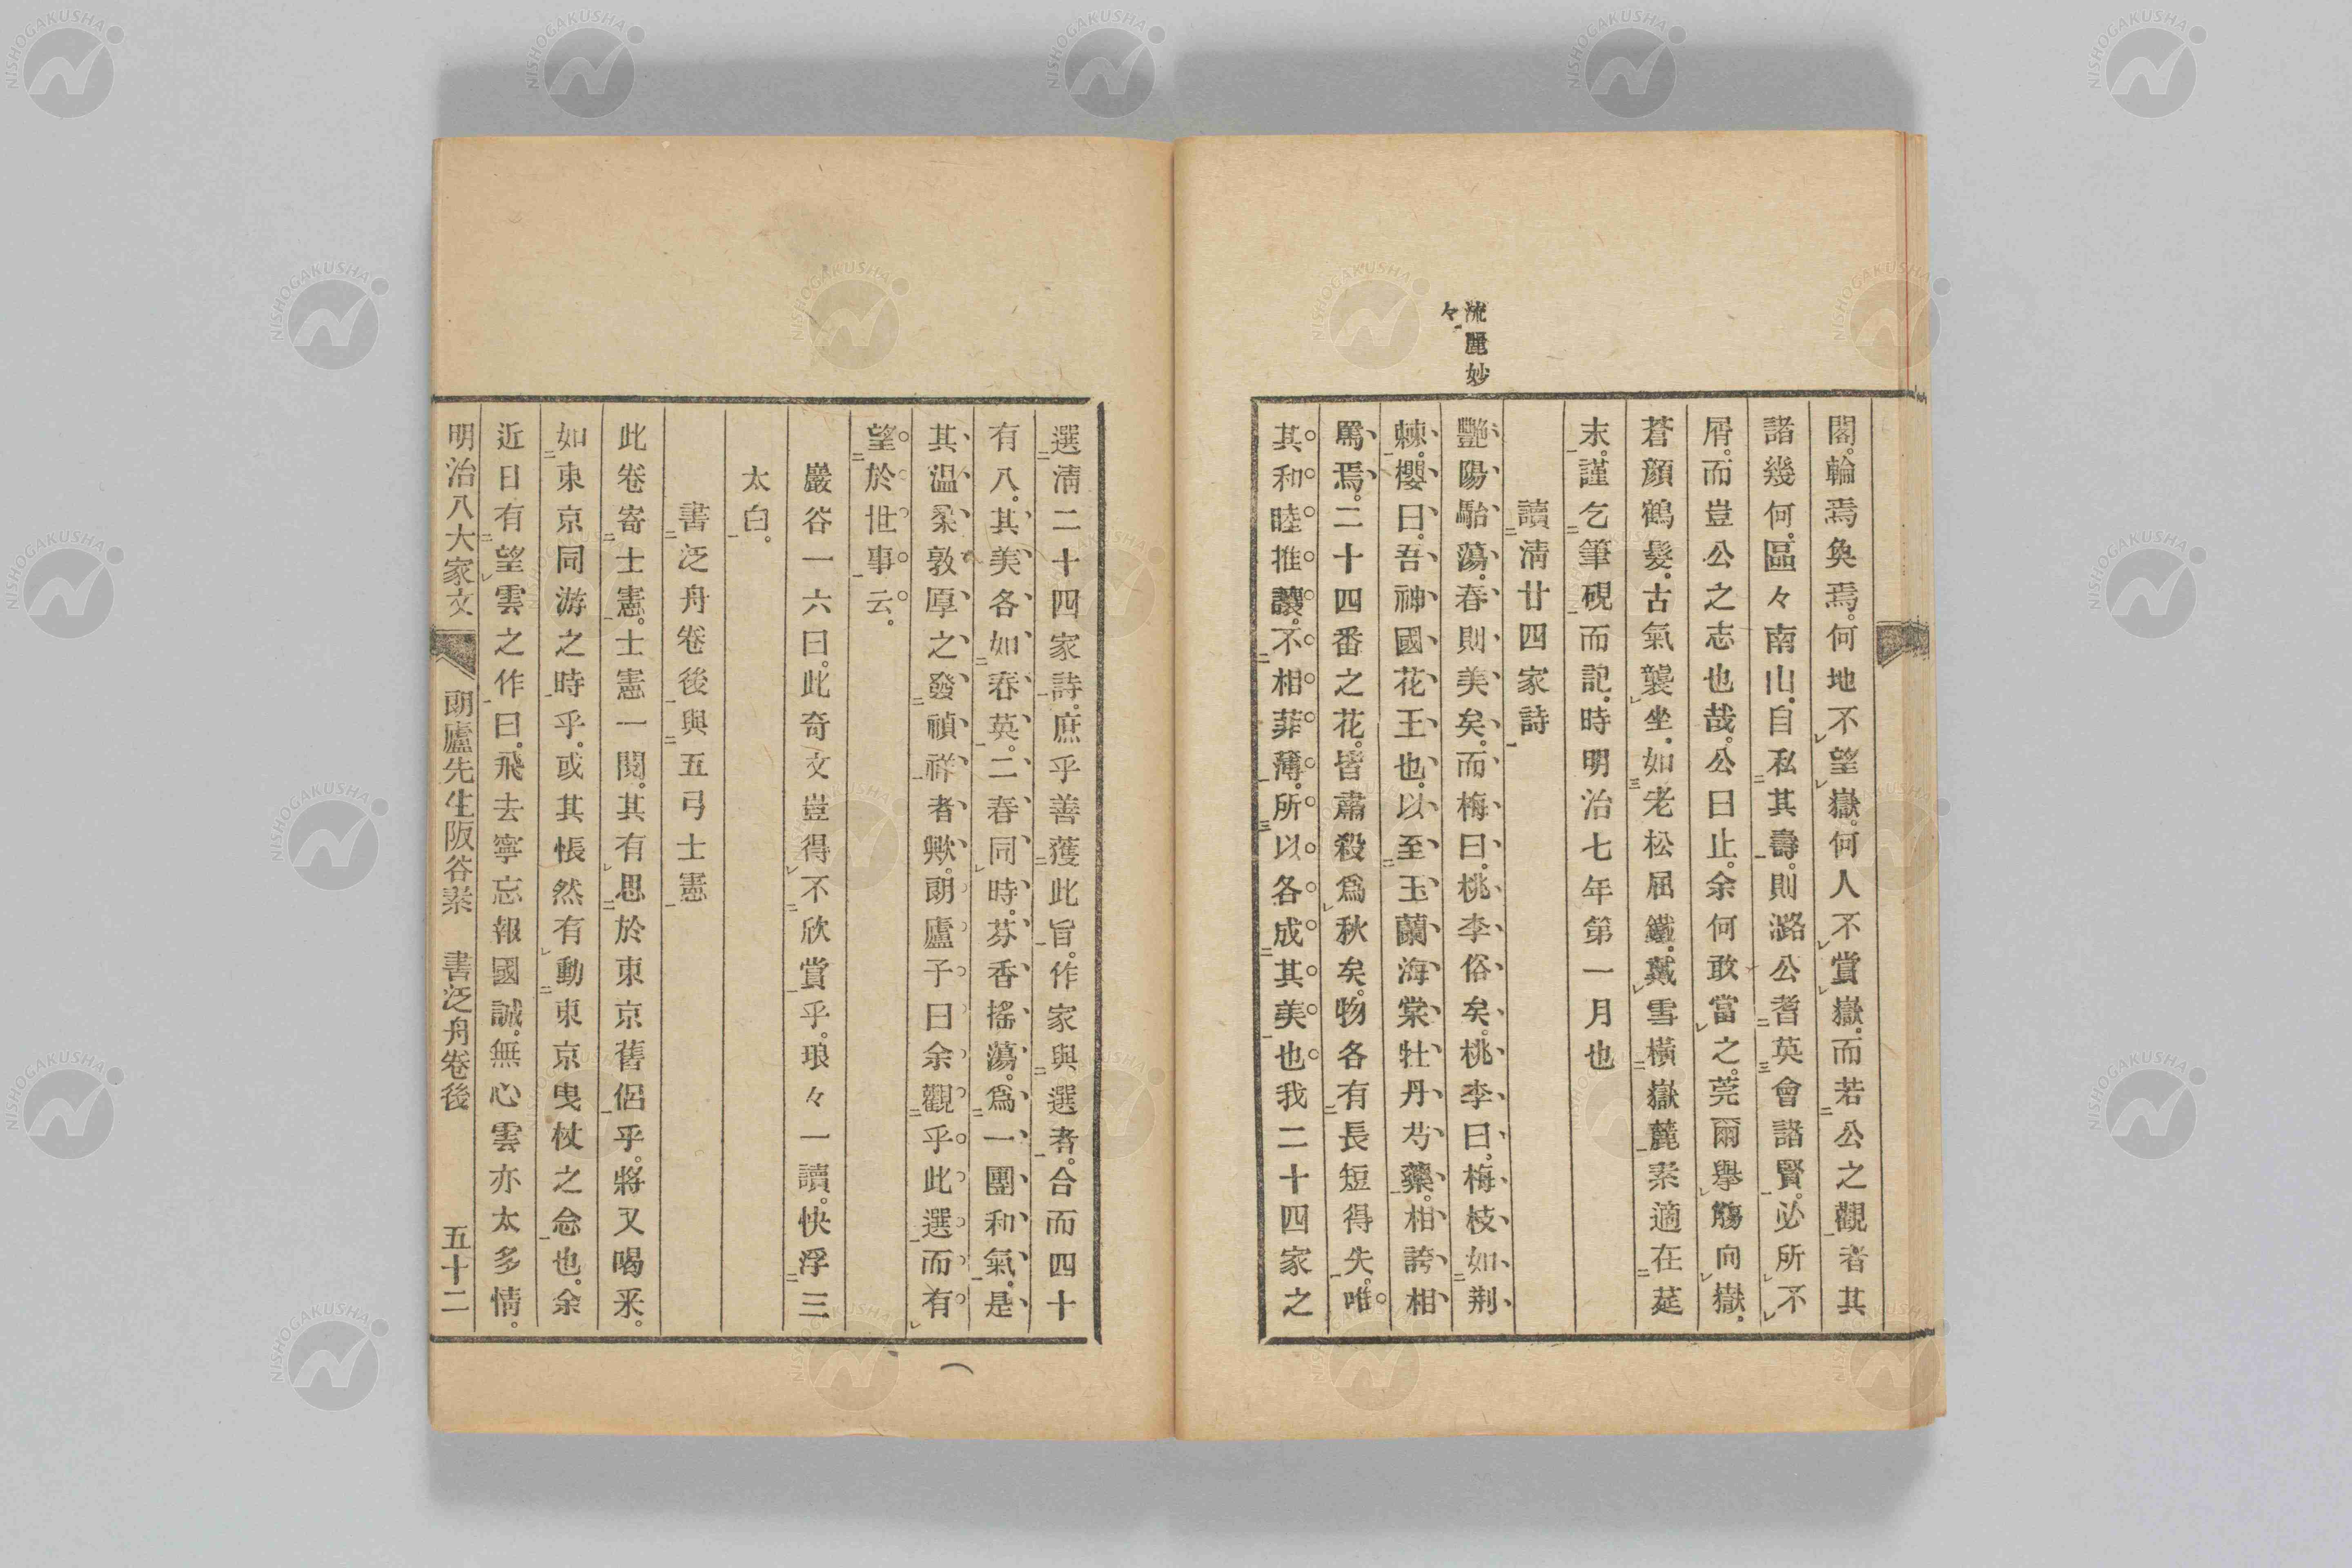 閣。輪焉奐焉。何地不望嶽。何人不賞嶽。而若公之觀者其
諸幾何。區々南山。自私其壽。則潞公耆英會諸賢。必所不
屑。而豈公之志也哉。公曰止。余何敢當之。莞爾擧觴向嶽。
蒼顏鶴髮。古氣襲坐。如老松屈鐵。戴雪橫嶽麓。素適在莚
末。謹乞筆硯而記。時明治七年第一月也
讀淸廿四家詩
流麗妙
々
艷陽駘蕩。春則美矣。而梅曰。桃李俗矣。桃李曰。梅枝如荆
棘。櫻曰。吾神國花王也。以至玉蘭海棠牡丹芍藥。相誇相
罵焉。二十四番之花。皆肅殺爲秋矣。物各有長短得失。唯
其和睦推讓。不相菲薄。所以各成其美也我二十四家之
選淸二十四家詩。庶乎善獲此旨。作家與選者。合而四十
有八。其美各如春英。二春同時。芬香搖蕩。爲一團和氣。是
其溫柔敦厚之發禎祥者歟。朗廬子曰余觀乎此選而有
望於世事云。
巖谷一六曰。此奇文豈得不欣賞乎。琅々一讀。快浮三
太白。
書泛舟卷後與五弓士憲
此卷寄士憲。士憲一閱。其有思於東京舊侶乎。將又喝釆。
如東京同游之時乎。或其悵然有動東京曳杖之念也。余
近日有望雲之作曰。飛去寧忘報國誠。無心雲亦太多情。
明治八大家文 朗廬先生阪谷素 書泛舟卷後 五十二
NISHOGAKUSHA